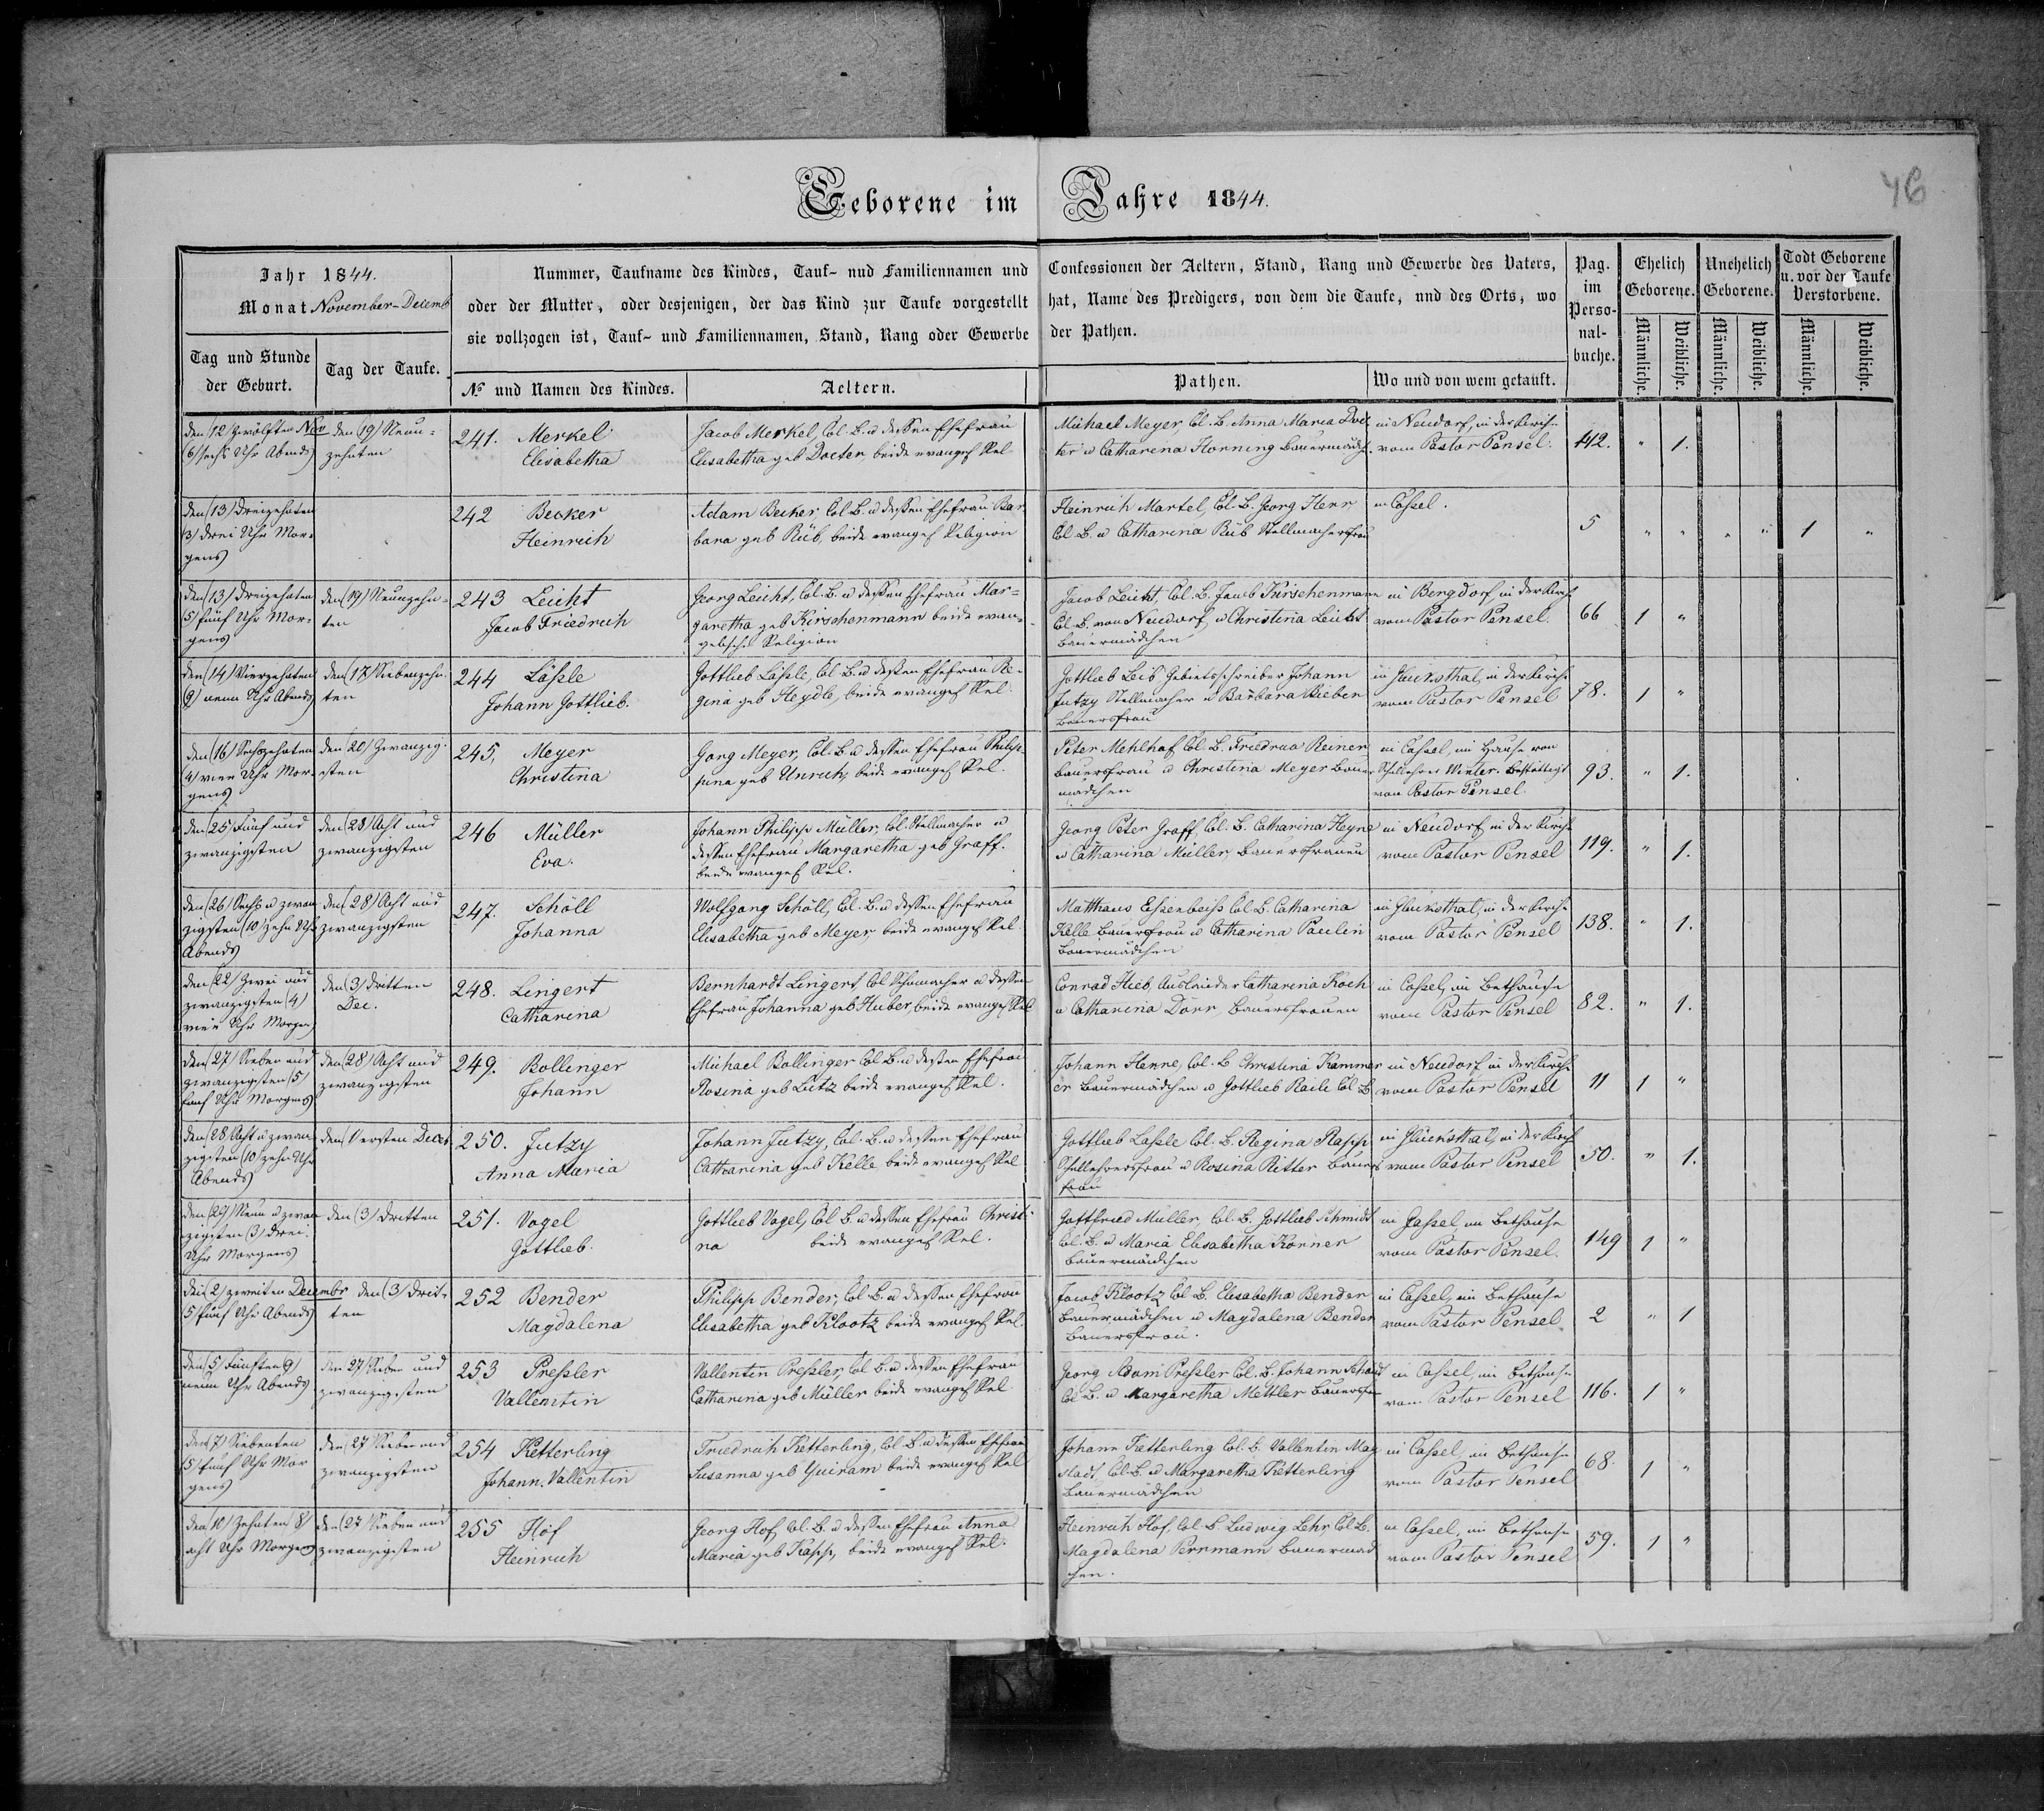 46
Geborene im Jahre 1844.
Jahr 1844.
Monat November-Decemb
Tag und Stunde der Geburt.
Tag der Taufe.
Nummer, Taufname des Kindes, Tauf- nud Familiennamen und Confessionen der Aeltern, Stand, Rang und Gewerbe des Vaters,
oder der Mutter, oder desjenigen, der das Kind zur Taufe vorgestellt hat, Name des Predigers, von dem die Taufe, und des Orts, wo
sie vollzogen ist, Tauf- und Familiennamen, Stand, Rang oder Gewerbe der Pathen.
No und Namen des Kindes.
Aeltern.
Pathen.
Wo und von wem getauft.
Pag. im Personal-buche.
Ehelich Geborene.
Unehelich Geborene.
Todt Geborene u. vor der Taufe Verstorbene.
Männliche. Weibliche. Männliche. Weibliche. Männliche. Weibliche.
den (12) zwölften Nov
(6) sechs Uhr Abends
den (19) Neun-
zehnten
241. Merkel
Elisabetha
Jacob Merkel, Col. B. u dessen Ehefrau
Elisabetha geb Docter beide evangel Rel
Michael Meyer Col. B. Anna Maria Doc
ter u Catharina Horning Bauermädch.
in Neudorf, in der Kirche
vom Pastor Pensel.
142. " 1.
den (13) Dreizehnten
(3) drei Uhr Mor-
gens
242 Becker
Heinrich
Adam Becker Col. B. u dessen Ehefrau Bar
bara geb Rüb, beide evangel Religion
Heinrich Martel, Col. B. Georg Herr
Col. B. u Catharina Rüb Stellmachersfrau
in Cassel.
5 " " " " 1 "
den (13) Dreizehnten
(5) fünf Uhr Mor-
gens
den (19) Neunzehn-
ten
243 Leicht
Jacob Friedrich
Georg Leicht, Col. B. u dessen Ehefrau Mar-
garetha geb Kirschenmann beide evan-
gelische Religion
Jacob Leicht, Col. B. Jacob Kirschenmann
Col. B. von Neudorf, u Christina Leicht
Bauermädchen
in Bergdorf, in der Kirch
vom Pastor Pensel.
66 1 "
den (14) Vierzehnten
(9) neun Uhr Abends
den (17) Siebenzehn-
ten
244 Läßle
Johann Gottlieb.
Gottlieb Läßle, Col. B. u dessen Ehefrau Re-
gina geb Heydle, beide evangel Rel.
Gottlieb Leib Gebietsschreiber Johann
Jutzy Stellmacher u Barbara Rieber
Bauersfrau
in Glücksthal, in der Kirche
vom Pastor Pensel
78. 1 "
den (16) Sechszehnten
(4) vier Uhr Mor-
gens
den (20) Zwanzig-
sten
245, Meyer
Christina
Gorg Meyer, Col. B. u dessen Ehefrau Philip-
pina geb Unruh, beide evangel Rel.
Peter Mehlhaf Col. B. Reiner
Bauersfrau u Christina Meyer Bauer
mädchen
in Cassel, im Hause von
Schullehrer Winter. Bestättigt
von Pastor Pensel.
93. " 1.
den (25) Fünf und
zwanzigsten
den (28) Acht und
zwanzigsten
246 Müller
Eva.
Johann Philipp Müller, Col. Stellmacher u
dessen Ehefrau Margaretha geb Graff.
beide evangel Rel.
Georg Peter Graff, Col. B. Catharina Heyne
u Catharina Müller, Bauersfrauen
in Neudorf, in der Kirche
vom Pastor Pensel
119. " 1.
den (26) Sechs u zwan
zigsten (10) zehn Uhr
Abends
den (28) Acht und
zwanzigsten
247. Schöll
Johanna
Wolfgang Schöll, Col. B. u dessen Ehefrau
Elisabetha geb Meyer, beide evangel Rel
Matthaus Col. B. Catharina
Kelle Bauersfrau u Catharina Paulin
Bauermädchen
in Glücksthal, in der Kirche
vom Pastor Pensel
138. " 1.
den (22) Zwei und
zwanzigsten (4)
vier Uhr Morgen
den (3) dritten
Dec.
248. Lingert
Catharina
Bernhardt Lingert, Col. Schumacher u dessen
Ehefrau Johanna geb Huber, beide evangel Rel
Conrad Hieb, Ausländer Catharina Koch
u Catharina Dörr Bauersfrauen
in Cassel, im Bethause
vom Pastor Pensel
82. " 1.
den (27) Sieben und
zwanzigsten (5)
fünf Uhr Morgens
den (28) Acht und
zwanzigsten
249. Bollinger
Johann
Michael Bollinger Col. B. u dessen Ehefrau
Rosina geb Lutz beide evangel Rel.
Johann Henne, Col. B. Christina Kammer
er Bauermädchen u Gottlieb Raile Col. B.
in Neudorf in der Kirche
vom Pastor Pensel
11 1 "
den (28) Acht u zwan
zigsten (10) zehn Uhr
Abends
den (1) ersten Deceb.
250. Jutzy
Anna Maria
Johann Jutzy, Col. B. u dessen Ehefrau
Catharina geb Kelle, beide evangel Rel
Gottlieb Laßle Col. B. Regina Rapp
Schullehrersfrau u Rosina Ritter Bauers
frau
in Glücksthal, in der Kirch
vom Pastor Pensel
50. " 1.
den (29) Neun u zwan
zigsten (3) drei
Uhr Morgens
den (3) dritten
251. Vogel
Gottlieb.
Gottlieb Vogel, Col B. u dessen Ehefrau Christ-
na beide evangel Rel.
Gottfried Müller, Col. B. Gottlieb Schmidt
Col. B. u Maria Elisabetha Korner
Bauermädchen
in Cassel, im Bethause
vom Pastor Pensel.
149 1 "
den (2) zweiten Decembr
(5) fünf Uhr Abends
den (3) Drit-
ten
252 Bender
Magdalena
Philipp Bender, Col. B. u dessen Ehefrau
Elisabetha geb Klootz beide evangel Rel.
Jacob Klootz Col B. Elisabetha Bender
Bauermädchen u Magdalena Bender
Bauersfrau.
in Cassel, im Bethause
vom Pastor Pensel
2 " 1
den (5) Fünften (9)
neun Uhr Abends
den (27) Sieben und
zwanzigsten
253 Preßler
Vallentin
Vallentin Preßler, Col. B. u dessen Ehefrau
Catharina geb Müller beide evangel Rel
Georg Adam Preßler Col. B. Johann
Col. B. u Margaretha Mettler Bauersfr
in Cassel, im Bethause
vom Pastor Pensel
116. 1 "
den (7) Siebenten
(5) fünf Uhr Mor
gens
den (27) Sieben und
zwanzigsten
254 Ketterling
Johann Vallentin
Friedrich Ketterling, Col. B. u dessen Ehefrau
Susanna geb Quiram beide evangel Rel
Johann Ketterling Col. B. Vallentin Mag
stadt, Col. B. u Margaretha Ketterling
Bauermädchen
in Cassel, im Bethause
vom Pastor Pensel
68. 1 "
den (10) Zehnten (8)
acht Uhr Morgens
den (27) Sieben und
zwanzigsten
255 Hof
Heinrich
Georg Hof, Col. B. u dessen Ehefrau Anna
Maria geb Kapp, beide evangel Rel.
Heinrich Hof, Col. B. Ludwig Lehr Col. B.
Magdalena Perrmann Bauermäd
chen.
in Cassel, im Bethause
vom Pastor Pensel
59. 1 "